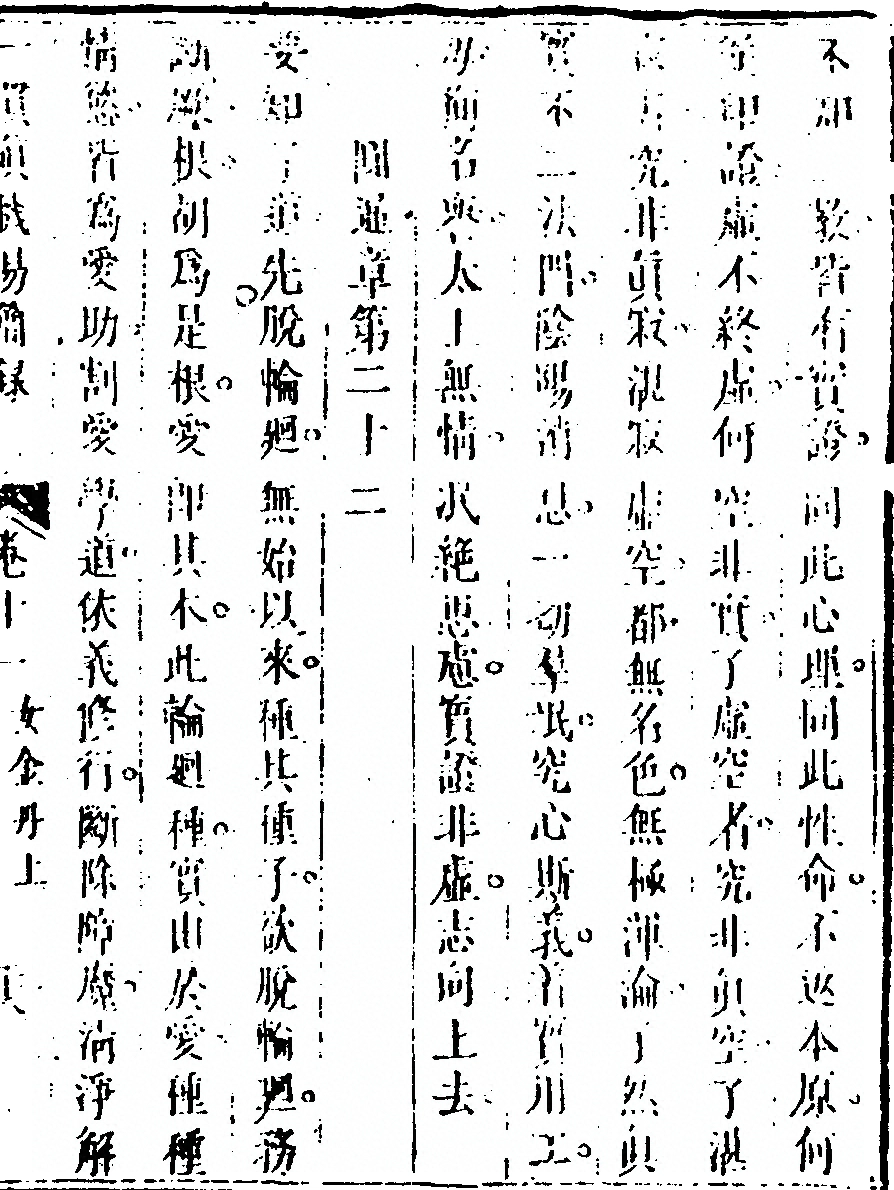 不知 数皆有實證同此心理同此性命不返本原何
印證虛不終虛何空非實了虛空者究非眞空了湛
究非眞寂湛寂虛空都無名色無極渾淪了然眞
實不二法門陰陽消息一切羣氓究心斯義着實用工
名與太上無情永絕思慮實證非虛志向上去
圓通章第二十二
要知了道先脫輪廻無始以來種其種子欲脫輪廻務
根胡爲是根愛卽其本此輪廻種實由於愛種種
情慾皆爲愛助割愛學道依義修行斷除障魔淸淨解
一貫眞機易簡錄 卷十一 女金丹上